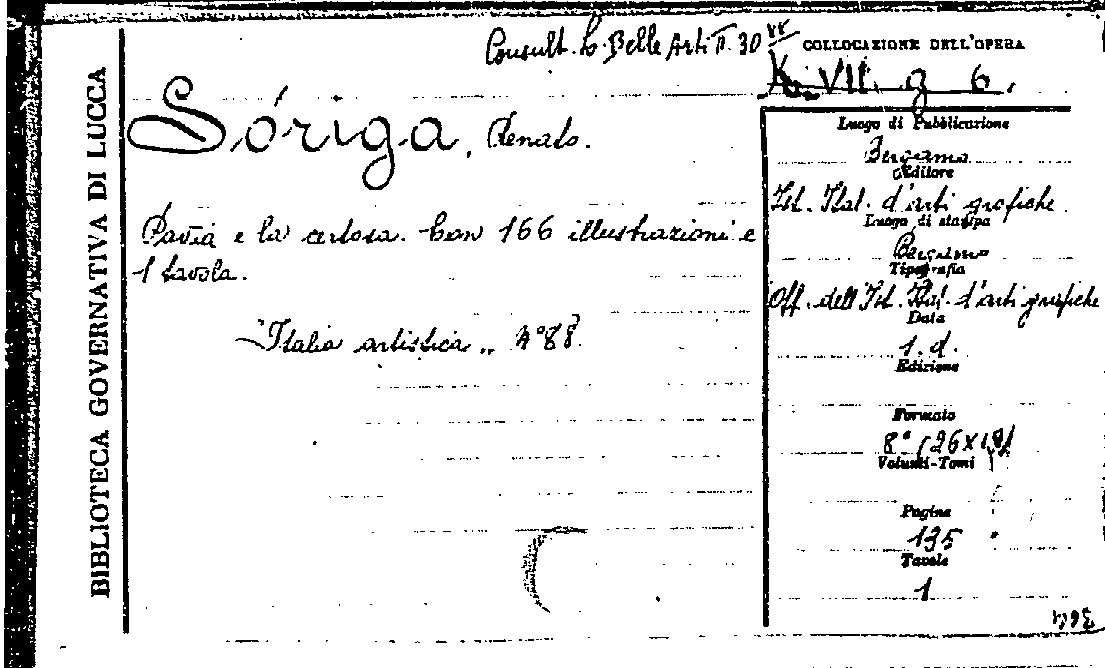 BIBLIOTECA GOVERNATIVA DI LUCCA
Consult. Belle Arti II. 30
COLLOCAZIONE DELL'OPERA
VII. g 6.
Sóriga, Renato.
Pavia e la certosa. Con 166 illustrazioni e
1 tavola.
"Italia artistica„ N° 88.
Luogo di Pubblicazione
Bergamo
Editore
Ist. Ital. d'arti grafiche
Luogo di stampa
Bergamo
Tipografia
Off. dell'Ist. Ital. d'arti grafiche
Data
s. d.
Edizione
Formato
8° (26x18)
Volumi-Tomi
Pagine
135
Tavole
1